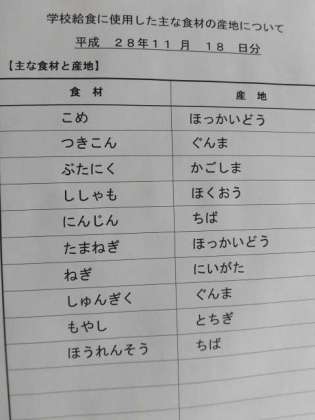 学校給食に使用した主な食材の産地について
平成 28年11 月 18 日分
【主な食材と産地】
食 材 産 地
こめ ほっかいどう
つきこん ぐんま
ぶたにく かごしま
ししゃも ほくおう
にんじん ちば
たまねぎ ほっかいどう
ねぎ にいがた
しゅんぎく ぐんま
もやし とちぎ
ほうれんそう ちば